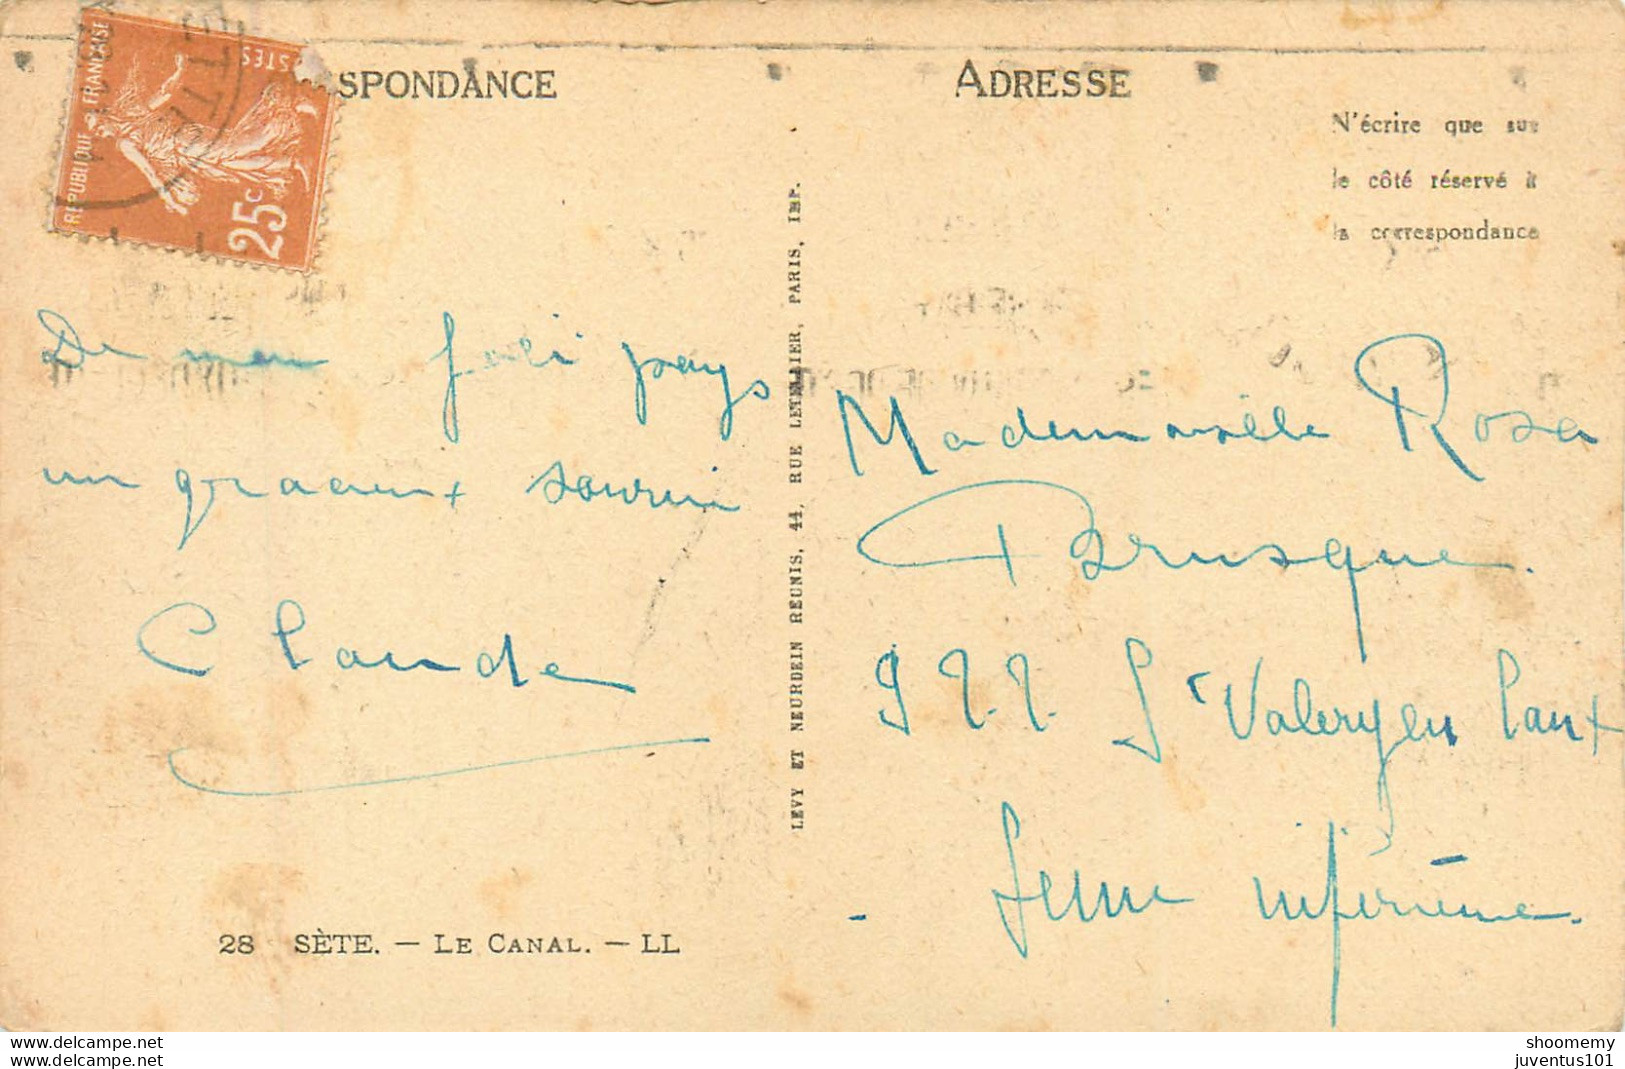 RÉPUBLIQUE FRANÇAISE
POSTES
25c
SPONDANCE
De mon joli pays
un gracieux sourire
Claude
28 SÈTE. — LE CANAL. — LL
LEVY ET NEURDEIN RÉUNIS, 44, RUE LETELLIER, PARIS, IMP.
ADRESSE
N'écrire que sur
le côté réservé à
la correspondance
Mademoiselle Rosa
Brusque.
P.T.T. St Valery en Caux
Seine inférieure.
delcampe.net
delcampe.net
shoomemy
juventus101